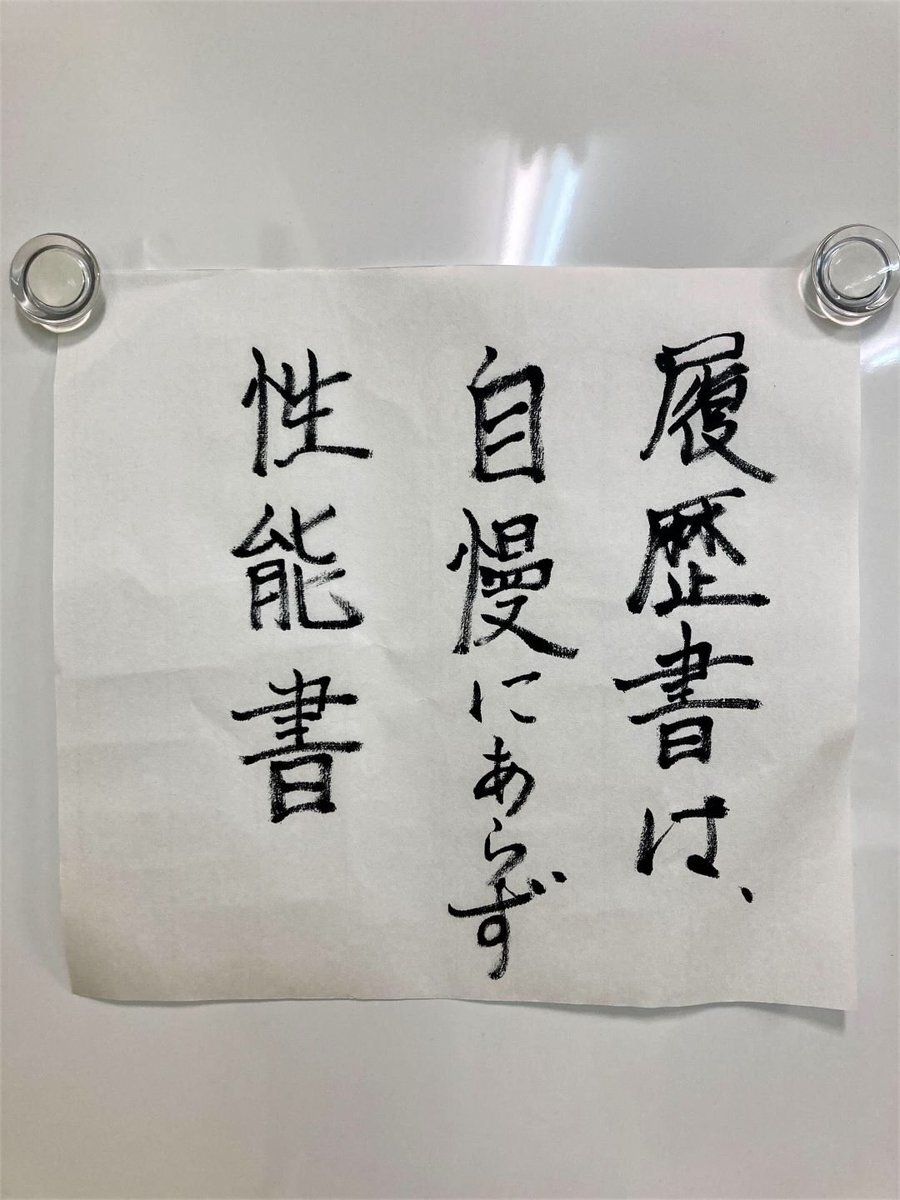 履歴書は、
自慢にあらず
性能書